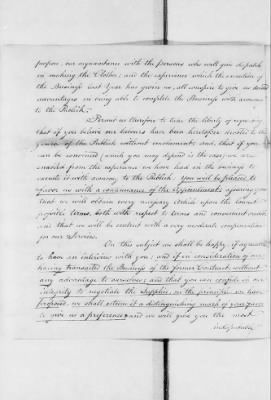 propose, our acquaintance with the persons who will give dispatch
in making the Clothes; and the experience which the execution of
the Business last Year has given us, all conspire to give us decided
advantages in being able to complete the Business with economy
to the Publick.
Permit us therefore to take the liberty of requesting
that if you believe our labours have been heretofore devoted to the
of the Publick without emolument; and, that if you
can be convinced (which you may depend is the case,) we are
enabled from the experience we have had in the to
execute it with economy to the Publick. You will be pleased to
favor us with a continuance of the Appointment; assuring you
that we will obtain every necessary Article upon the lowest
possible terms, both with respect to terms and convenient made,
and that we will be content with a very moderate compensation
for our Services.
On this subject we shall be happy, if agreeable
to have an interview with you; and if in consideration of our
having transacted the Business of the former Contract, without
any advantage to ourselves; and that you can confide in our
integrity to negotiate the Supplies, on the principle we have
proposed, we shall esteem it a distinguishing mark of your
to give us a preference; and we will give you the most